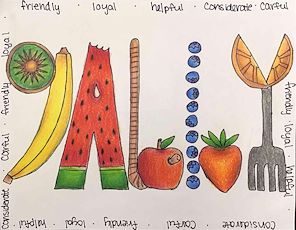 friendly · loyal · helpful · considerate · carful
PALLY
friendly · loyal · helpful ·
Considerate · Carful · friendly · loyal · helpful ·
Considerate Carful · friendly loyal